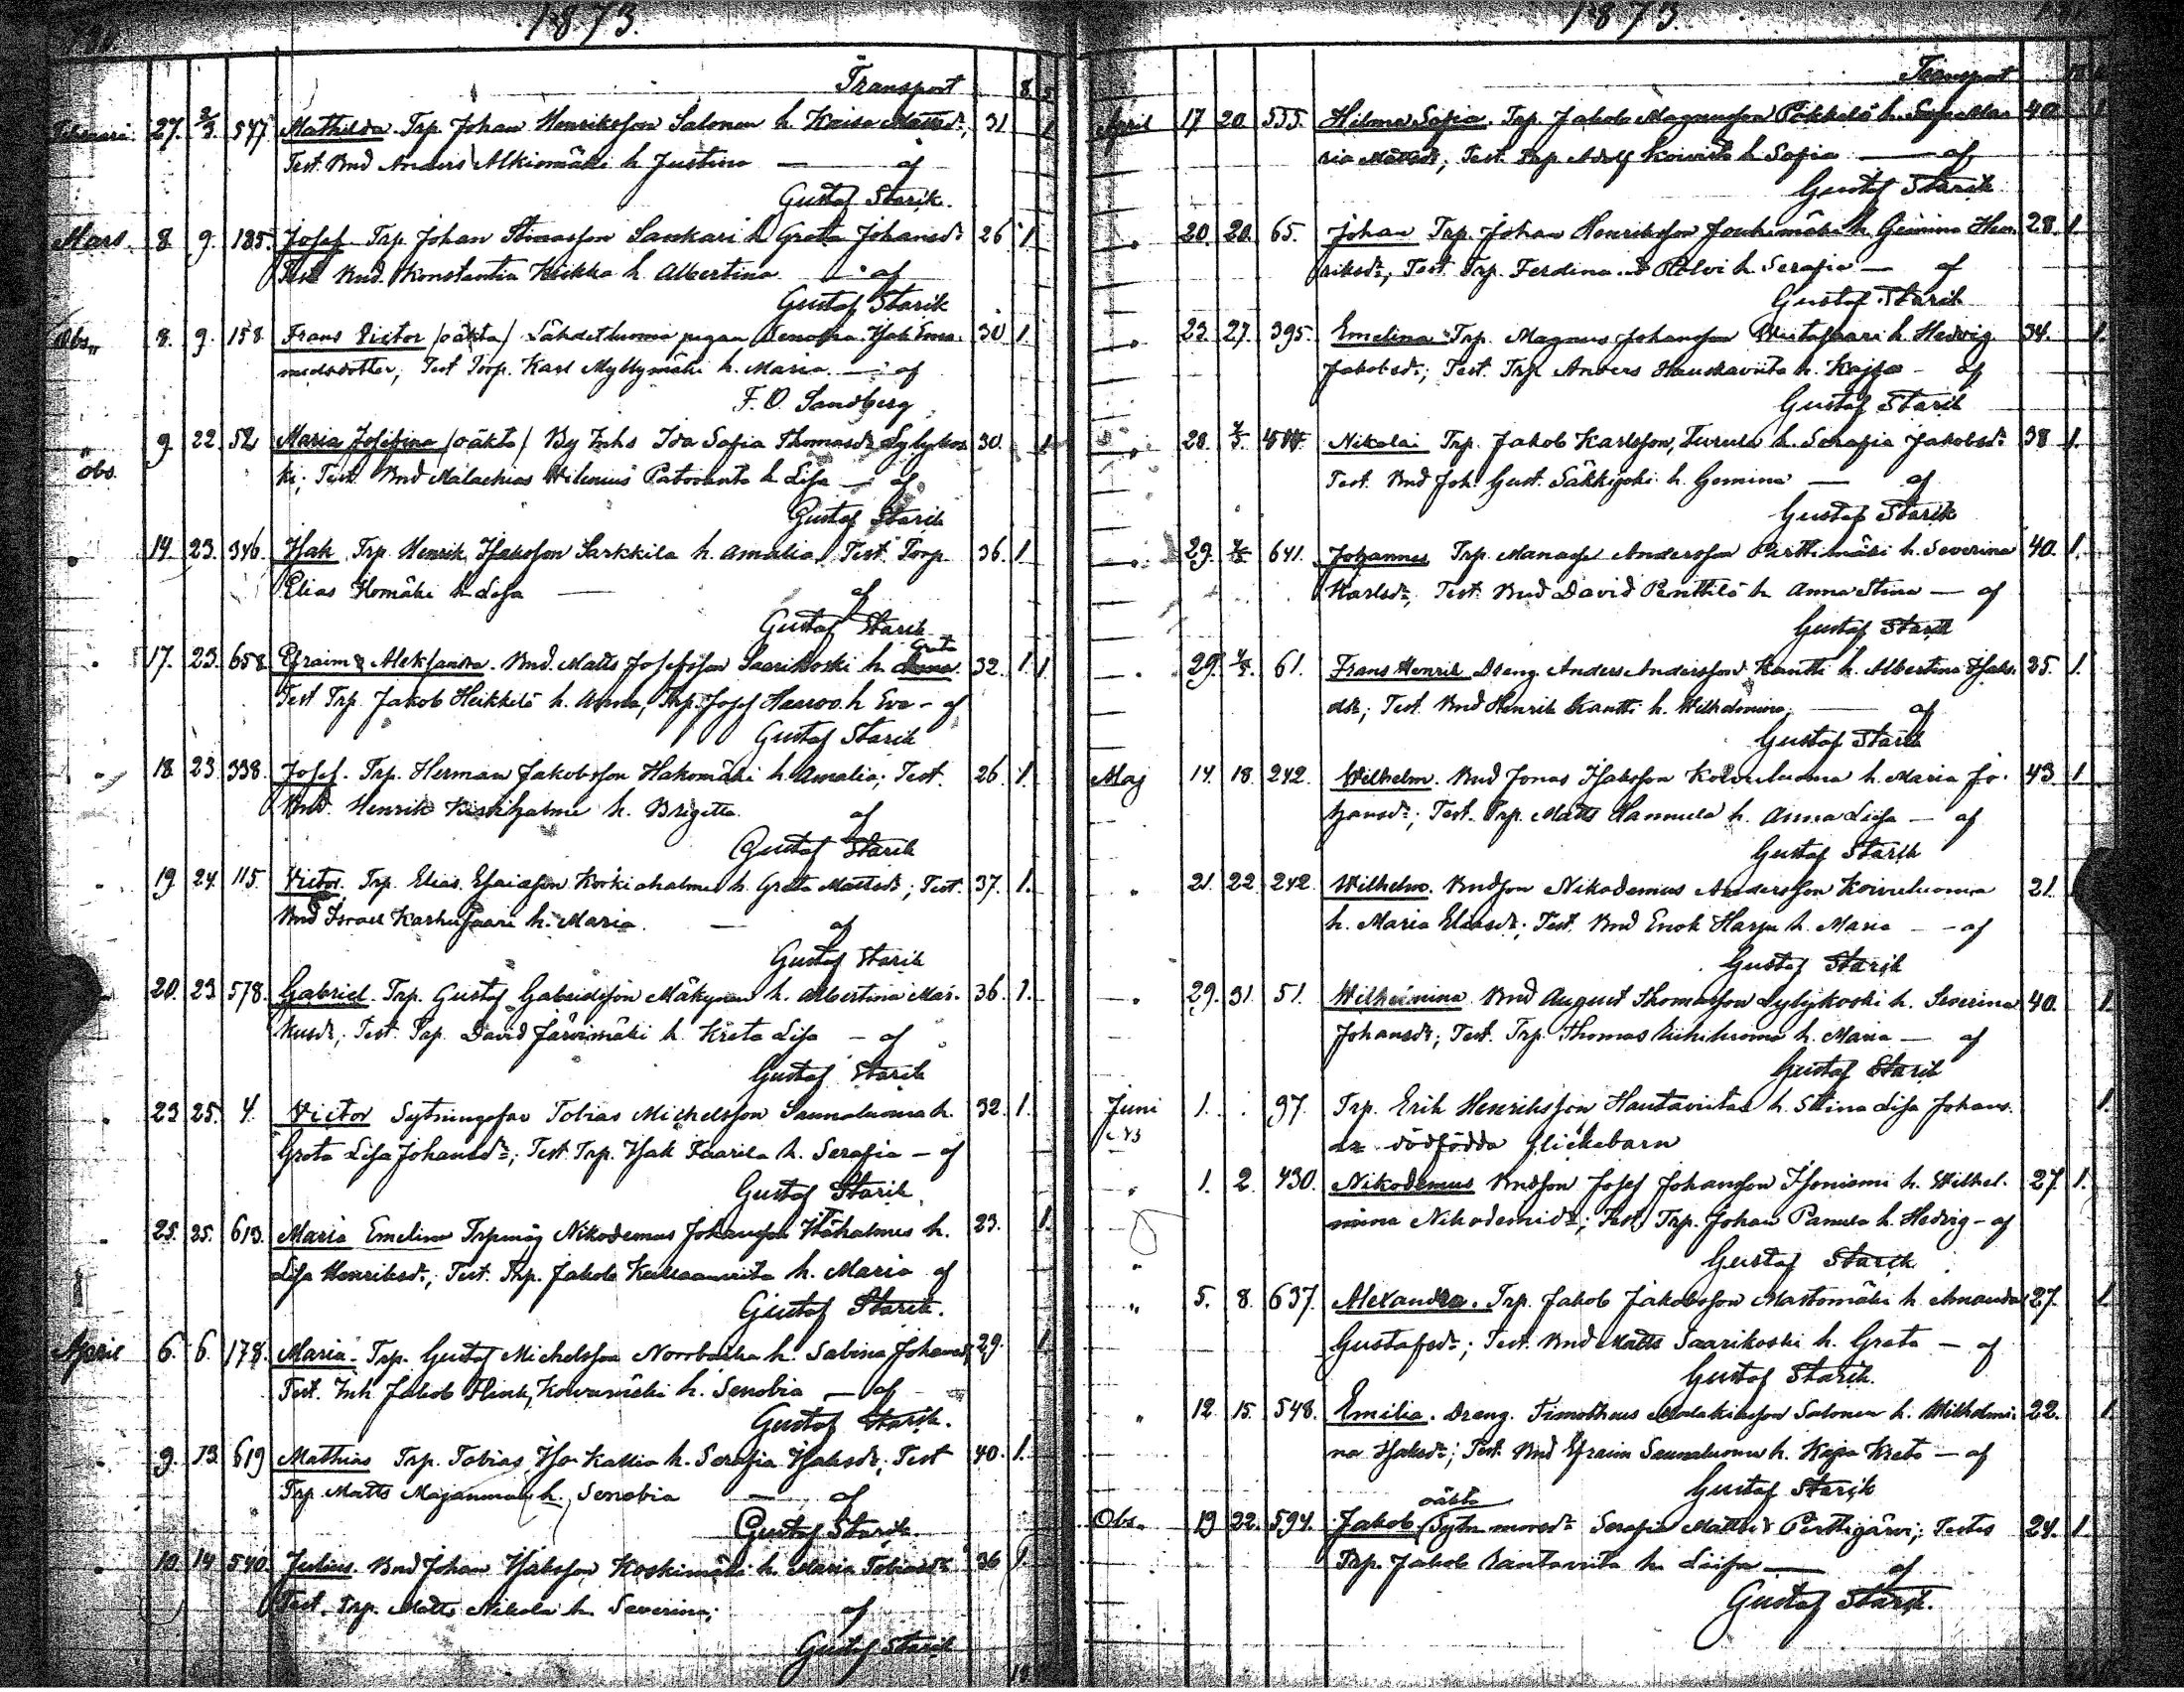 1873.
Transport 8. 5
Februari 27. 2/3 547 Mathilda. Trp. Johan Henriksson Salonen h. Kaisa Mattsdr, 31 1
Test. Bnd Anders Alkiomäki h. Justina — af
Gustaf Starik.
Mars. 8. 9. 185. Josef Trp. Johan Sankari h. Greta Johansdr 26 1
Test. Bnd. Konstantin Kiikka h. Albertina — af
Gustaf Starik
Obs. 8. 9. 158 Frans Victor /oäkta/ Lähdetluoma pigan Senofia Isak
dotter, Test Torp. Karl Myllymäki h. Maria — af
F. O. Sandberg
" 9. 22 52 Maria Josefina /oäkta/ By Inhs Ida Sofia Thomasdr Lylykos 30. 1
obs. ki; Test. Bnd Malachias Wilenius h. Lisa — af
Gustaf Starik
14. 23. 346. Isak Trp. Henrik Isaksson Sarkkila h. Amalia, Test. Torp. 36. 1.
Elias Komäki h. Lisa — af
Gustaf Starik
Greta
17. 23. 658. Efraim & Aleksandra. Bnd. Matts Josefsson Saarikoski h. 32. 1. 1
Test Trp. Jakob Heikkilä h. Anna, Trp. Josef h. Eva — af
Gustaf Starik
18 23 338. Josef. Trp. Herman Jakobsson Hakomäki h. Amalia; Test. 26. 1.
Bnd. Henrik h. Brigitta af
Gustaf Starik
19 24. 115. Victor. Trp. Elias Esaiasson h. Greta Mattsdr; Test. 37. 1.
Bnd Israel Karhusaari h. Maria. — af
Gustaf Starik
20. 23 578. Gabriel. Trp. Gustaf Gabrielsson Mäkynen h. Albertina Mar- 36. 1.
kusdr; Test. Trp. David Järvimäki h. Kreta Lisa — af
Gustaf Starik
23 25. 4. Victor Sytningsfar Tobias Michelsson Saunaluoma h. 32. 1.
Greta Lisa Johansdr; Test. Trp. Isak h. Serafia — af
Gustaf Starik
25. 25. 613. Maria Emelina Trpmåg Nikodemus Johansson h. 23. 1.
Lisa Henriksdr; Test. Trp. Jakob h. Maria af
Gustaf Starik.
April 6. 6. 178. Maria. Trp. Gustaf Michelsson Norrbacka h. Sabina Johansdr, 29. 1.
Test. Inh. Jakob h. Senobia — af
Gustaf Starik.
9. 13 619 Mathias Trp. Tobias Kallio h. Serafia Isaksdr; Test 40. 1.
Trp. Matts h. Senobia — af
Gustaf Starik.
10 14 540. Julius. Bnd Johan Isaksson Koskimäki h. Maria Tobiasdr 36 1.
Test. Trp. Matts Nikola h. Severina; af
Gustaf Starik
1873.
Transport
April 17 20 555. Hilma Sofia. Trp. Jakob Magnusson Pökkelä h. Ma- 40 1
ria Mattsdr; Test. Trp Adolf Koivisto h. Sofia — af
Gustaf Starik
20. 20. 65. Johan Trp. Johan Henriksson Jouhimäki h. Gemina Hen- 28. 1.
riksdr; Test. Trp. Ferdinand Polvi h. Serafia — af
Gustaf Starik
23. 27. 395. Emelina Trp. Magnus Johansson h. Hedvig 34. 1.
Jakobsdr; Test. Trp Anders h. Kajsa — af
Gustaf Starik
28. Nikolai Trp. Jakob Karlsson, Turula h. Serafia Jakobsdr 38 1.
Test. Bnd Joh. Gust. Säkkijoki h. Gemina — af
Gustaf Starik
29. 641. Johannes Trp. Manasse Andersson Pirttimäki h. Severina 40. 1.
Karlsdr; Test. Bnd David Penttilä h. Anna Stina — af
Gustaf Starik
29. 61. Frans Henrik Dräng Anders Andersson Kantti h. Albertina Isaks- 25. 1.
dtr; Test. Bnd Henrik Kantti h. Wilhelmina; — af
Gustaf Starik
Maj 14. 18. 242. Wilhelm. Bnd Jonas Isaksson Koivuluoma h. Maria Jo- 43. 1.
hansdr; Test. Trp. Matts Hannula h. Anna Lisa — af
Gustaf Starik
21. 22 242. Wilhelm. Bndson Nikodemus Andersson Koivuluoma 21. 1.
h. Maria Eliasdr; Test. Bnd Enok Harju h. Maria — af
Gustaf Starik
29. 31. 51. Wilhelmina Bnd August Thomasson Lylykoski h. Severina 40. 1.
Johansdr; Test. Trp. Thomas h. Maria — af
Gustaf Starik
Juni 1. . 97. Trp. Erik Henriksson Hautaviita h. Stina Lisa Johans- 1.
dr dödfödda flickebarn
" 1. 2. 430. Nikodemus Bndson Josef Johansson Isoniemi h. Wilhel- 27. 1.
mina Nikodemidr; Test. Trp. Johan Panula h. Hedvig — af
Gustaf Starik
" 5. 8. 637. Alexandra. Trp. Jakob Jakobsson Mastomäki h. Amanda 27. 1.
Gustafsdr; Test. Bnd Matts Saarikoski h. Greta — af
Gustaf Starik.
" 12. 15. 548. Emilia. Dräng. Timotheus Malakiasson Salonen h. Wilhelmi- 22. 1.
na Isaksdr; Test. Bnd Efraim Saunaluoma h. Kajsa Kreta — af
Gustaf Starik
oäkta
Obs. 19 22. 594. Jakob Sytn. Serafia Mattsdr Pirttijärvi; Testes 24. 1
Trp. Jakob Rantaviita h. Lisa — af
Gustaf Starik.